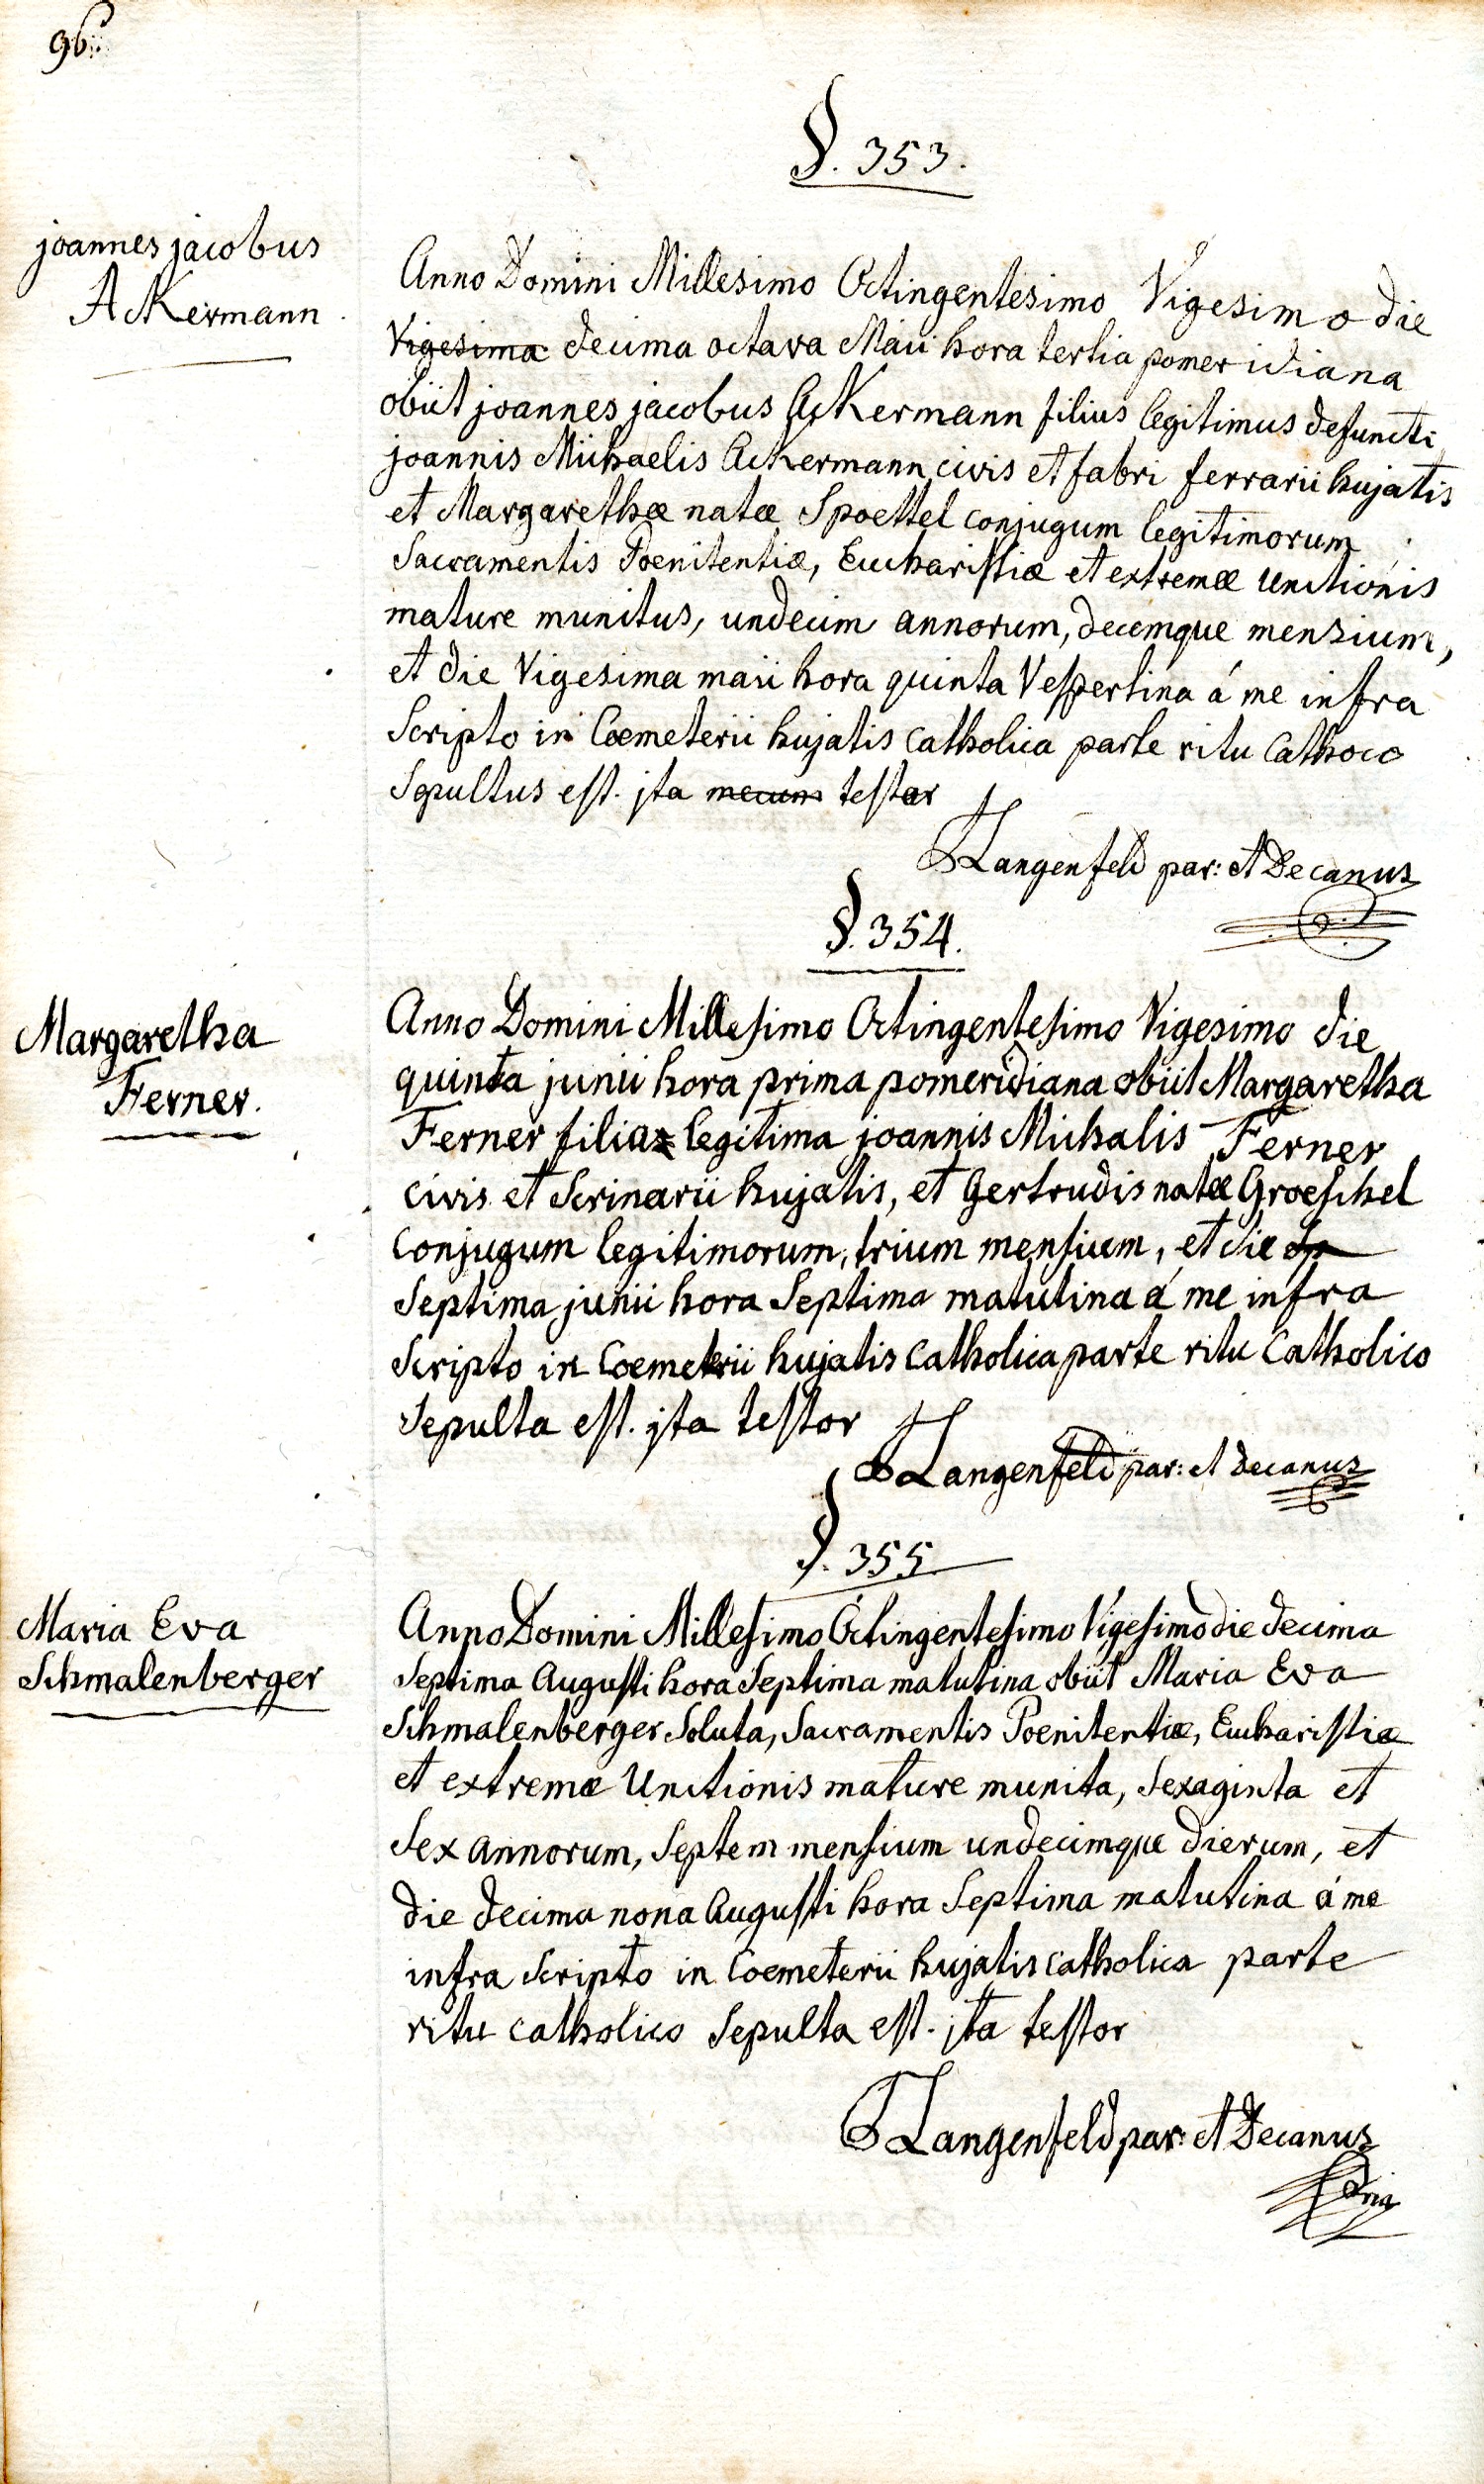 96.
§. 353.
joannes jacobus
Ackermann.
Anno Domini Millesimo Octingentesimo Vigesimo die
Vigesima decima octava Maii hora tertia pomeridiana
obiit joannes jacobus Ackermann filius legitimus defuncti
joannis Michaelis Ackermann civis et fabri ferrarii hujatis
et Margarethæ natæ Spoettel conjugum legitimorum
Sacramentis Poenitentiæ, Eucharistiæ et extremæ Unctionis
mature munitus, undecim annorum, decemque mensium,
et die Vigesima maii hora quinta Vespertina á me infra
Scripto in Coemeterii hujatis Catholica parte ritu Cathoco
Sepultus est. jta mecum testor
Langenfeld par: et Decanus
§. 354.
Margaretha
Ferner.
Anno Domini Millesimo Octingentesimo Vigesimo die
quinta junii hora prima pomeridiana obiit Margaretha
Ferner filia legitima joannis Michalis Ferner
civis et Scrinarii hujatis, et Gertrudis natæ Groeschel
Conjugum legitimorum, trium mensium, et die
Septima junii hora Septima matutina á me infra
Scripto in Coemeterii hujatis Catholica parte ritu Catholico
Sepulta est. jta testor
Langenfeld par: et decanus
§. 355
Maria Eva
Schmalenberger
Anno Domini Millesimo Octingentesimo Vigesimo die decima
Septima Augusti hora Septima matutina obiit Maria Eva
Schmalenberger Soluta, Sacramentis Poenitentiæ, Eucharistiæ
et extremæ Unctionis mature munita, Sexaginta et
Sex annorum, Septem mensium undecimque dierum, et
die decima nona Augusti hora Septima matutina á me
infra Scripto in Coemeterii hujatis Catholica parte
ritu Catholico Sepulta est. jta testor
Langenfeld par: et Decanus